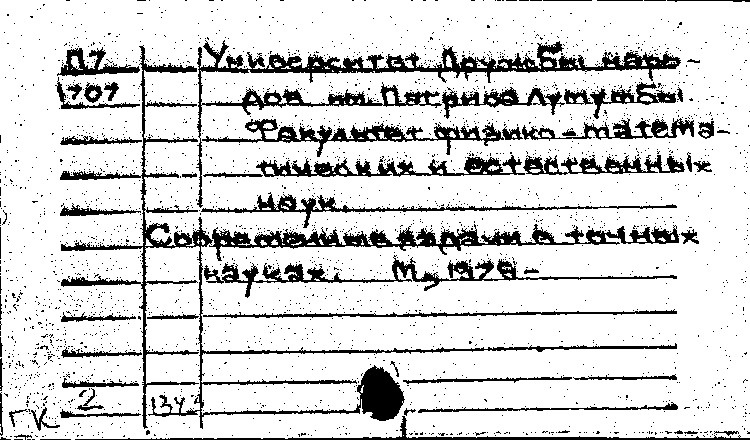 П7 Университет Дружбы наро-
1707 дов им. Патриса Лумумбы.
Факультет физико-матема-
тических и естественных
наук.
Современные задачи в точных
науках. М., 1976-
2 1343
ГК